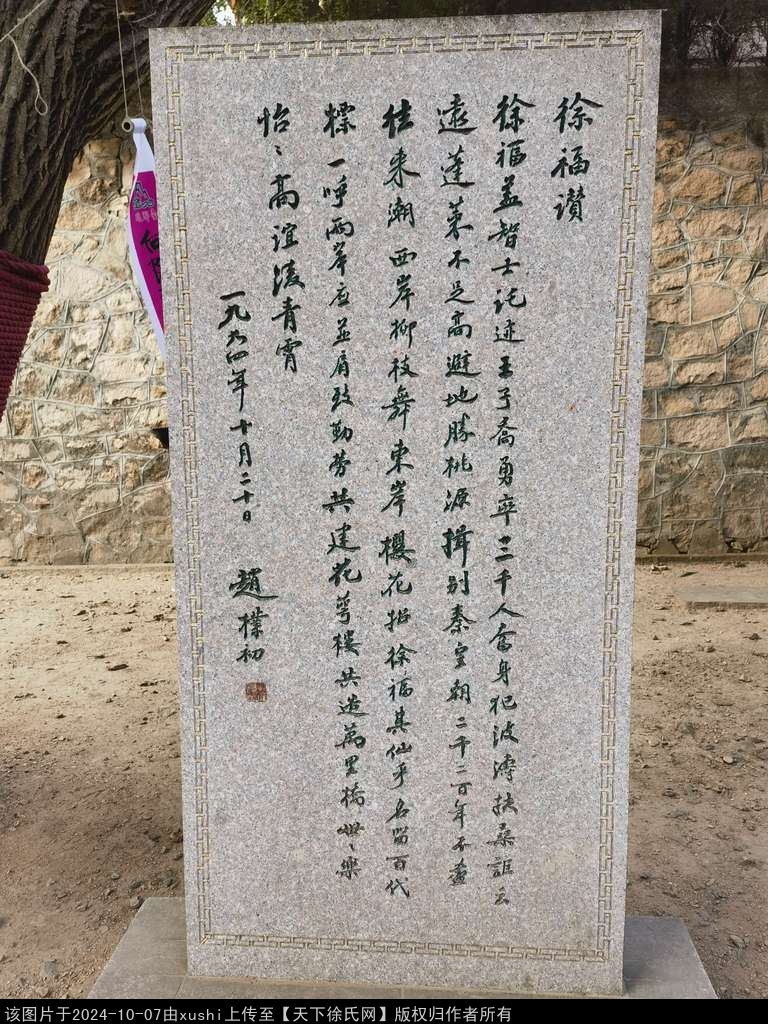 徐福讃
徐福盖智士託迹王子喬勇率三千人奮身犯波濤扶桑詎云
遠蓬萊不足高避地勝桃源揖别秦皇朝二千二百年不盡
往来潮西岸柳枝舞東岸櫻花招徐福其仙乎名留百代
標一呼兩岸應並肩致勤勞共建花萼樓共造萬里橋世〻樂
怡〻高誼淩青霄
一九九四年十月二十日
趙樸初
该图片于2024-10-07由xushi上传至【天下徐氏网】版权归作者所有